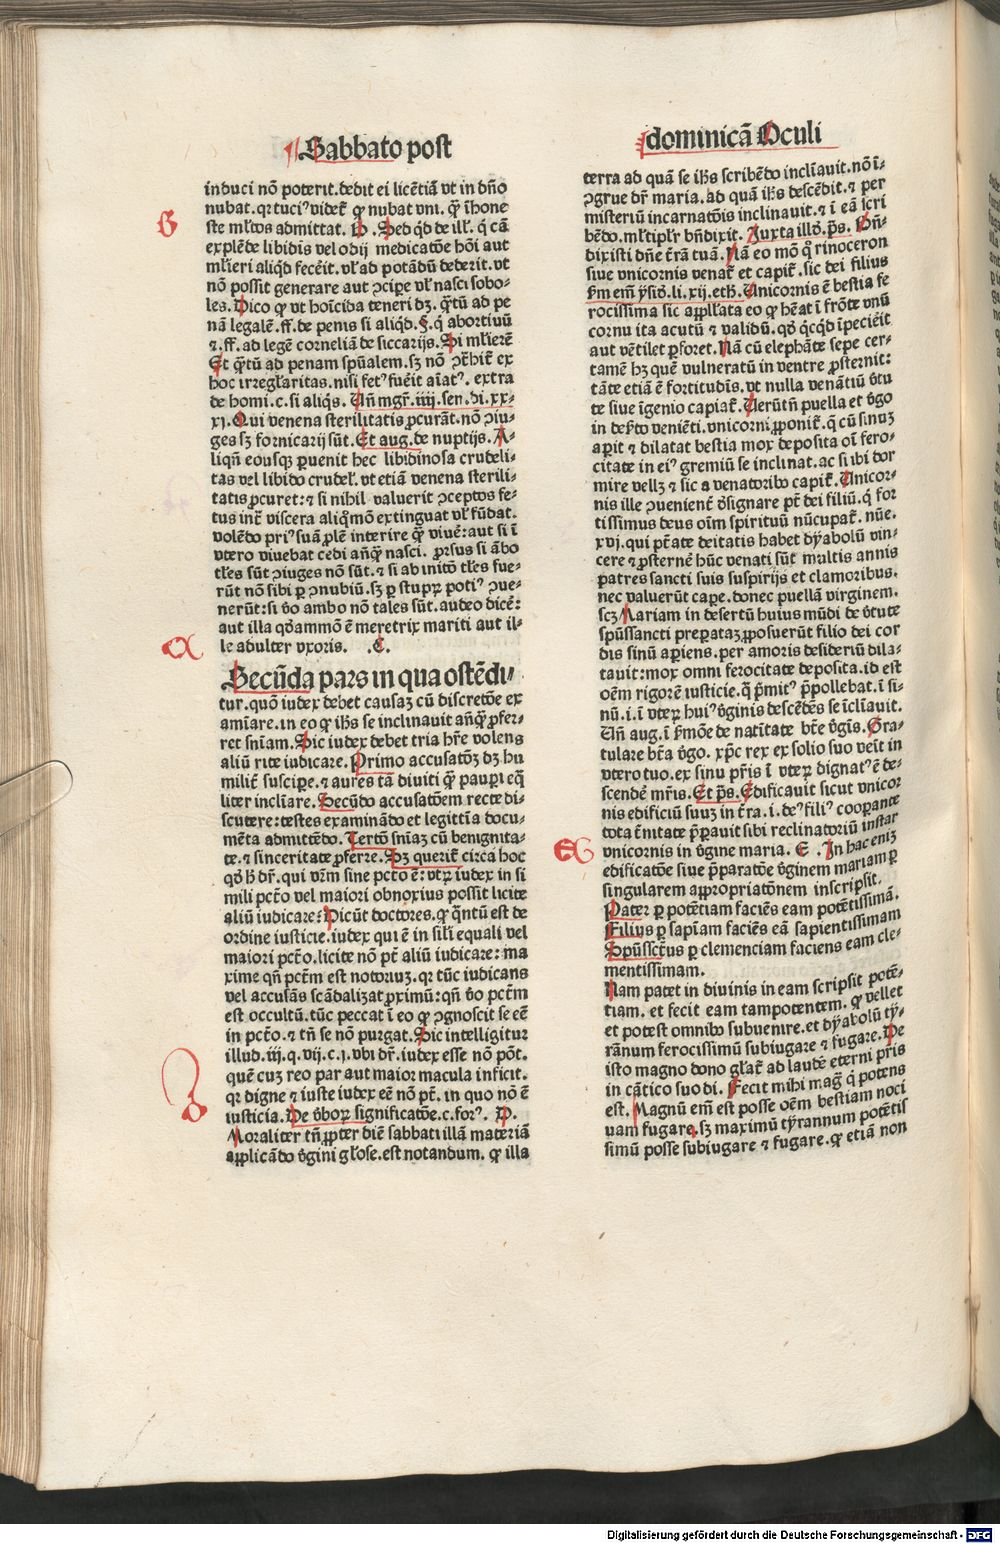 Sabbato post
induci nō poterit. dedit ei licētiā vt in dn̄o
nubat. qꝛ tuciꝰ videt᷑ ꝙ nubat vni. qͣ̄ ihone
ste ml̄tos admittat. D. Sed qͥd de ill̓. q̇ cā
explēde libidis vel odij medicatōe hoi̅ aut
ml̓ieri aliqͥd fecēit. vl̓ ad potādū dederit. vt
nō possit generare aut ↄcipe vl̓ nasci sobo⸗
les. Dico ꝙ vt hoi̅cida teneri dꝫ. qͣ̄tū ad pe
nā legalē. ff. de penis si aliqͥd. §. q̇ abortiuū
⁊. ff. ad legē corneliā de siccarijs. Si ml̓ierē
Et qͣ̄tū ad penam spūalem. sꝫ nō ↄt̓hit᷑ ex
hoc irregl̓aritas. nisi fetꝰ fuēit ai̅atꝰ. extra
de homi. c. si aliqͥs. Un̄ mgr̄. iiij. sen. di. xx⸗
xj. Qui venena sterilitatis ꝓcurāt. nō ↄiu⸗
ges sꝫ fornicarij sūt. Et aug. de nuptijs. A⸗
liqn̄ eousqꝫ ꝑuenit hec libidinosa crudeli⸗
tas vel libido crudel̓. vt etiā venena sterili⸗
tatis ꝓcuret: ⁊ si nihil valuerit ↄceptos fe⸗
tus int̓ viscera aliqͦmō extinguat vl̓ fūdat.
volēdo priꝰ suā ꝓlē interire qͣ̄ viuē: aut si ī
vtero viuebat cedi an̄qͣ̄ nasci. ꝓrsus si ābo
tl̓es sūt ↄiuges nō sūt. ⁊ si ab initō tl̓es fue⸗
rūt nō sibi ꝑ ↄnubiū. sꝫ ꝑ stupꝝ potiꝰ ↄue⸗
nerūt: si v̓o ambo nō tales sūt. audeo dicē:
aut illa qͦdammō ē meretrix mariti aut il⸗
le adulter vxoris. .C.
Secūda pars in qua ostēdi⸗
tur. quō iudex debet causaꝫ cū discretōe ex
amīare. in eo ꝙ ih̄s se inclinauit an̄qͣ̄ ꝓfer⸗
ret sn̄iam. Sic iudex debet tria hr̄e volens
aliū rite iudicare. Primo accusatōꝫ dꝫ hu
milit᷑ suscipe. ⁊ aures tā diuiti qͣ̄ pauꝑi eq̄
liter inclīare. Secūdo accusatōem recte di⸗
scutere: testes examinādo et legittia docu⸗
mēta admittēdo. Tertō sn̄iaꝫ cū benignita⸗
te. ⁊ sinceritate ꝓferre. Sꝫ querit᷑ circa hoc
qͦd h̓ dr̄. qui vr̄m sine pctō ē: vtꝝ iudex in si
mili pctō vel maiori obnoxius possit licite
aliū iudicare: Dicūt doctores. ꝙ qͣ̄ntū est de
ordine iusticie. iudex qui ē in sil̓i equali vel
maiori pctō. licite nō pt̄ aliū iudicare: ma
xime qn̄ pctm̄ est notoriuꝫ. qꝛ tūc iudicans
vel accusās scādalizat ꝓximū: qn̄ v̓o pctm̄
est occultū. tūc peccat ī eo ꝙ ↄgnoscit se eē
in pctō. ⁊ tn̄ se nō purgat. Sic intelligitur
illud. iij. q. vij. c. j. vbi dr̄. iudex esse nō pōt.
quē cuꝫ reo par aut maior macula inficit.
qꝛ digne ⁊ iuste iudex eē nō pt̄. in quo nō ē
iusticia. De v̓boꝝ significatōe. c. forꝰ. D.
Moraliter tn̄ ꝓpter diē sabbati illā materiā
applicādo v̓gini gl̓ose. est notandum. ꝙ illa
dominicā Oculi
terra ad quā se ih̄s scribēdo inclīauit. nō ī⸗
ↄgrue dr̄ maria. ad quā ih̄s descēdit. ⁊ per
misteriū incarnatōis inclinauit. ⁊ ī eā scri
bēdo. ml̓tipl̓r bn̄dixit. Juxta illō. ps̄. Bn̄⸗
dixisti dn̄e t̓rā tuā. Nā eo mō qͦ rinoceron
siue vnicornis venat᷑ et capit᷑. sic dei filius
ẜm em̄ ysid̓. li. xij. eth̓. Unicornis ē bestia fe
rocissima sic appl̓lata eo ꝙ hēat ī frōte vnū
cornu ita acutū ⁊ validū. qͦd qͥcqͥd īpeciēit
aut vētilet ꝑforet. Nā cū elephāte sepe cer⸗
tamē hꝫ quē vulneratū in ventre ꝓsternit:
tāte etiā ē fortitudis. vt nulla venātiū v̓tu
te siue īgenio capiat᷑. Uerūtn̄ puella et v̓go
in dek̓to veniēti. vnicorni ꝓponit᷑. q̇ cū sinuꝫ
aꝑit ⁊ dilatat bestia mox deposita oi̅ fero⸗
citate in eiꝰ gremiū se inclinat. ac si ibi dor
mire vellꝫ ⁊ sic a venatoribꝰ capit᷑. Unicor⸗
nis ille ↄuenient᷑ v̓signare pt̄ dei filiū. q̇ for
tissimus deus oi̅m spirituū nūcupat᷑. nūe.
xvj. qui pt̄ate deitatis habet dyabolū vin⸗
cere ⁊ ꝓsternē: hūc venati sūt multis annis
patres sancti suis suspirijs et clamoribus.
nec valuerūt cape. donec puellā virginem.
scꝫ Mariam in desertū huius mūdi de v̓tute
spūssancti preꝑataꝫ ꝓposuerūt filio dei cor
dis sinū aꝑiens. per amoris desideriū dila⸗
tauit: mox omni ferocitate deposita. id est
oēm rigorē iusticie. q̄ p̄mitꝰ p̄pollebat. ī si⸗
nū. i. ī vteꝝ huiꝰ v̓ginis descēdēs se īclīauit.
Un̄ aug. ī ẜmōe de natītate bt̄e v̓gīs. Gra⸗
tulare bt̄a v̓go. xp̄c rex ex solio suo veīt in
vtero tuo. ex sinu pr̄is ī vteꝝ dignatꝰ ē de⸗
scendē mr̄is. Et ps̄. Edificauit sicut vnicor
nis edificiū suuꝫ in t̓ra. i. deꝰ filiꝰ cooꝑante
tota t̓nitate p̄ꝑauit sibi reclinatoriū instar
vnicornis in v̓gine maria. E. In hac enīꝫ
edificatōe siue p̄paratōe v̓ginem mariam ꝑ
singularem appropriatōnem inscripsit.
Pater ꝑ potētiam faciēs eam potētissimā.
Filius ꝑ sapīam faciēs eā sapientissimam
Spūssctūs ꝑ clemenciam faciens eam cle⸗
mentissimam.
Nam patet in diuinis in eam scripsit potē⸗
tiam. et fecit eam tampotentem. ꝙ vellet
et potest omnibꝰ subuenire. et dyabolū ty⸗
rānum ferocissimū subiugare ⁊ fugare. De
isto magno dono gl̓at᷑ ad laudē eterni pr̄is
in cātico suo di. Fecit mihi mag̊ q̇ potens
est. Magnū em̄ est posse oēm bestiam noci
uam fugare. sꝫ maximū tyrannum potētis
simū posse subiugare ⁊ fugare. ꝙ etiā non
Digitalisierung gefördert durch die Deutsche Forschungsgemeinschaft - DFG